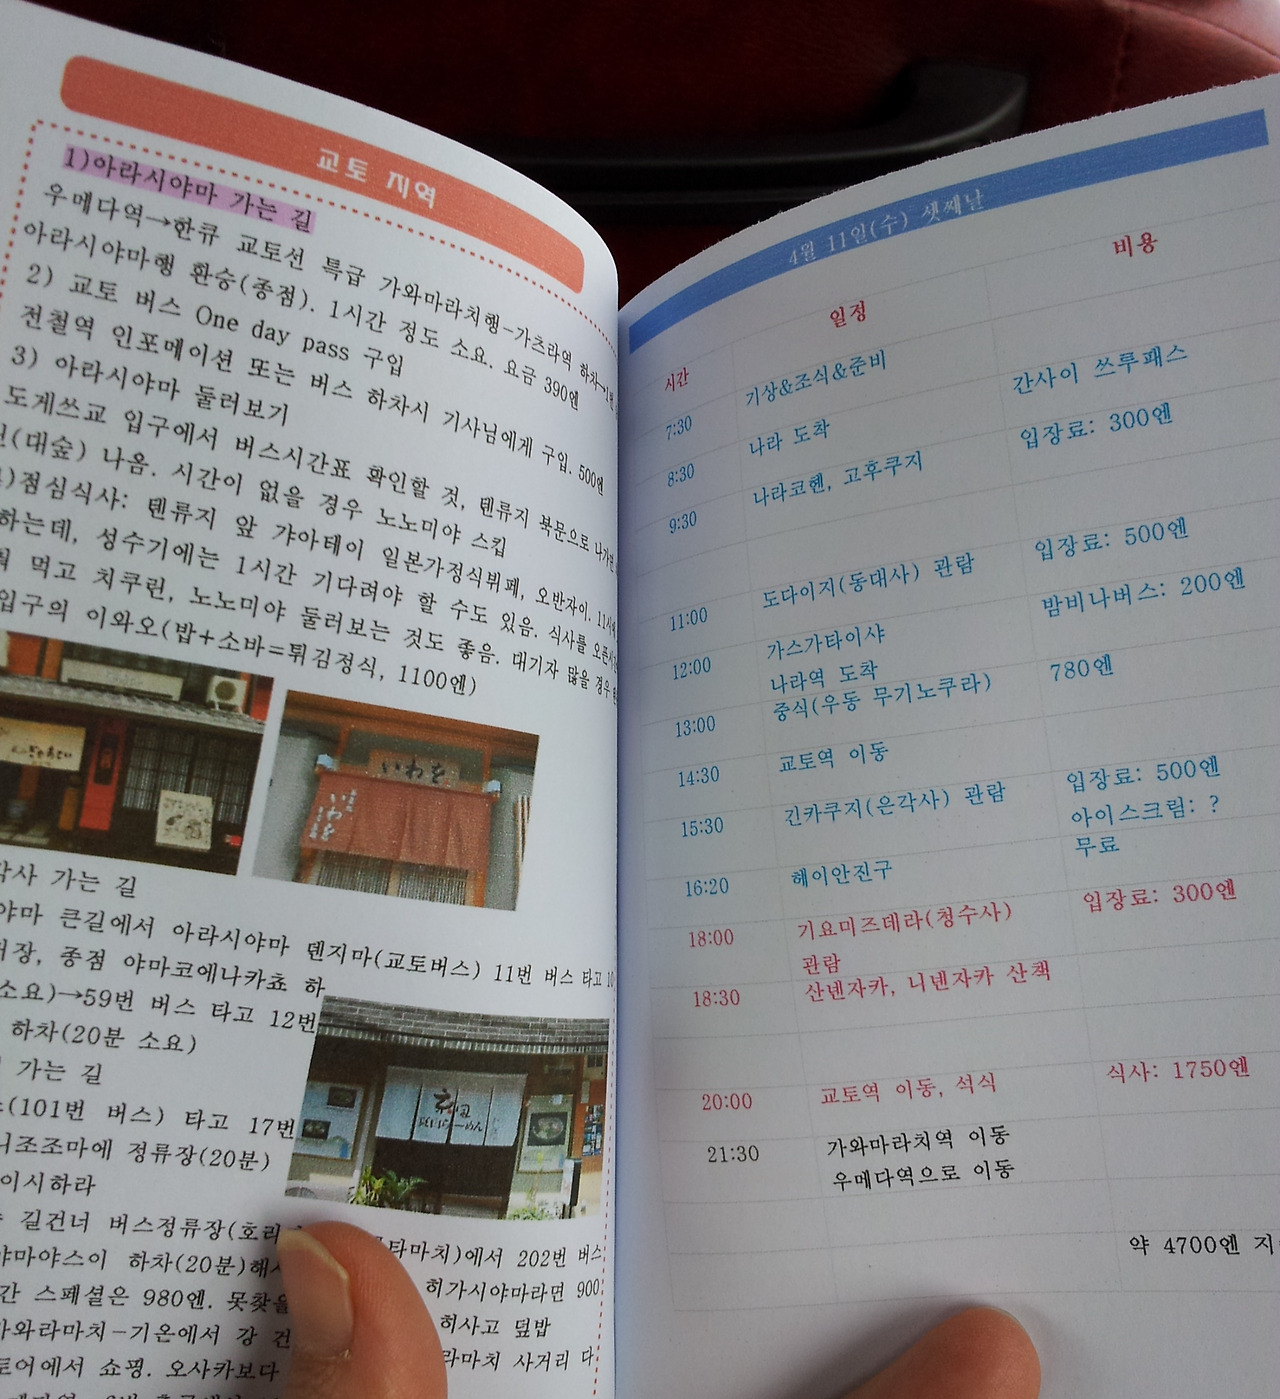 교토 지역
1)아라시야마 가는 길
우메다역→한큐 교토선 특급 가와마라치행-가츠라역 하차→
아라시야마행 환승(종점). 1시간 정도 소요. 요금 390엔
2) 교토 버스 One day pass 구입
전철역 인포메이션 또는 버스 하차시 기사님에게 구입. 500엔
3) 아라시야마 둘러보기
도게쓰교 입구에서 버스시간표 확인할 것, 텐류지 북문으로 나가면
(대숲) 나옴. 시간이 없을 경우 노노미야 스킵
)점심식사: 텐류지 앞 갸아테이 일본가정식뷔페, 오반자이. 11시에
하는데, 성수기에는 1시간 기다려야 할 수도 있음. 식사를
먹고 치쿠린, 노노미야 둘러보는 것도 좋음. 대기자 많을 경우
입구의 이와오(밥+소바=튀김정식, 1100엔)
いわを
가는 길
야마 큰길에서 아라시야마 덴지마(교토버스) 11번 버스 타고
종점 야마코에나카쵸 하
소요)→59번 버스 타고 12번
하차(20분 소요)
가는 길
(101번 버스) 타고 17번
니조조마에 정류장(20분)
이시하라
길건너 버스정류장(호리
타마치)에서 202번 버스
야마야스이 하차(20분)해서
히가시야마라면 900
스페셜은 980엔. 못찾을
히사고 덮밥
가와라마치-기온에서 강 건
라마치 사거리 다
토어에서 쇼핑. 오사카보다
4월 11일(수) 셋째날
시간 일정 비용
7:30 기상&조식&준비
8:30 나라 도착 간사이 쓰루패스
9:30 나라코헨, 고후쿠지 입장료: 300엔
11:00 도다이지(동대사) 관람 입장료: 500엔
12:00 가스가타이샤 밤비나버스: 200엔
나라역 도착
13:00 중식(우동 무기노쿠라) 780엔
14:30 교토역 이동
15:30 긴카쿠지(은각사) 관람 입장료: 500엔
아이스크림: ?
16:20 헤이안진구 무료
18:00 기요미즈데라(청수사) 입장료: 300엔
관람
18:30 산넨자카, 니넨자카 산책
20:00 교토역 이동, 석식 식사: 1750엔
21:30 가와마라치역 이동
우메다역으로 이동
약 4700엔